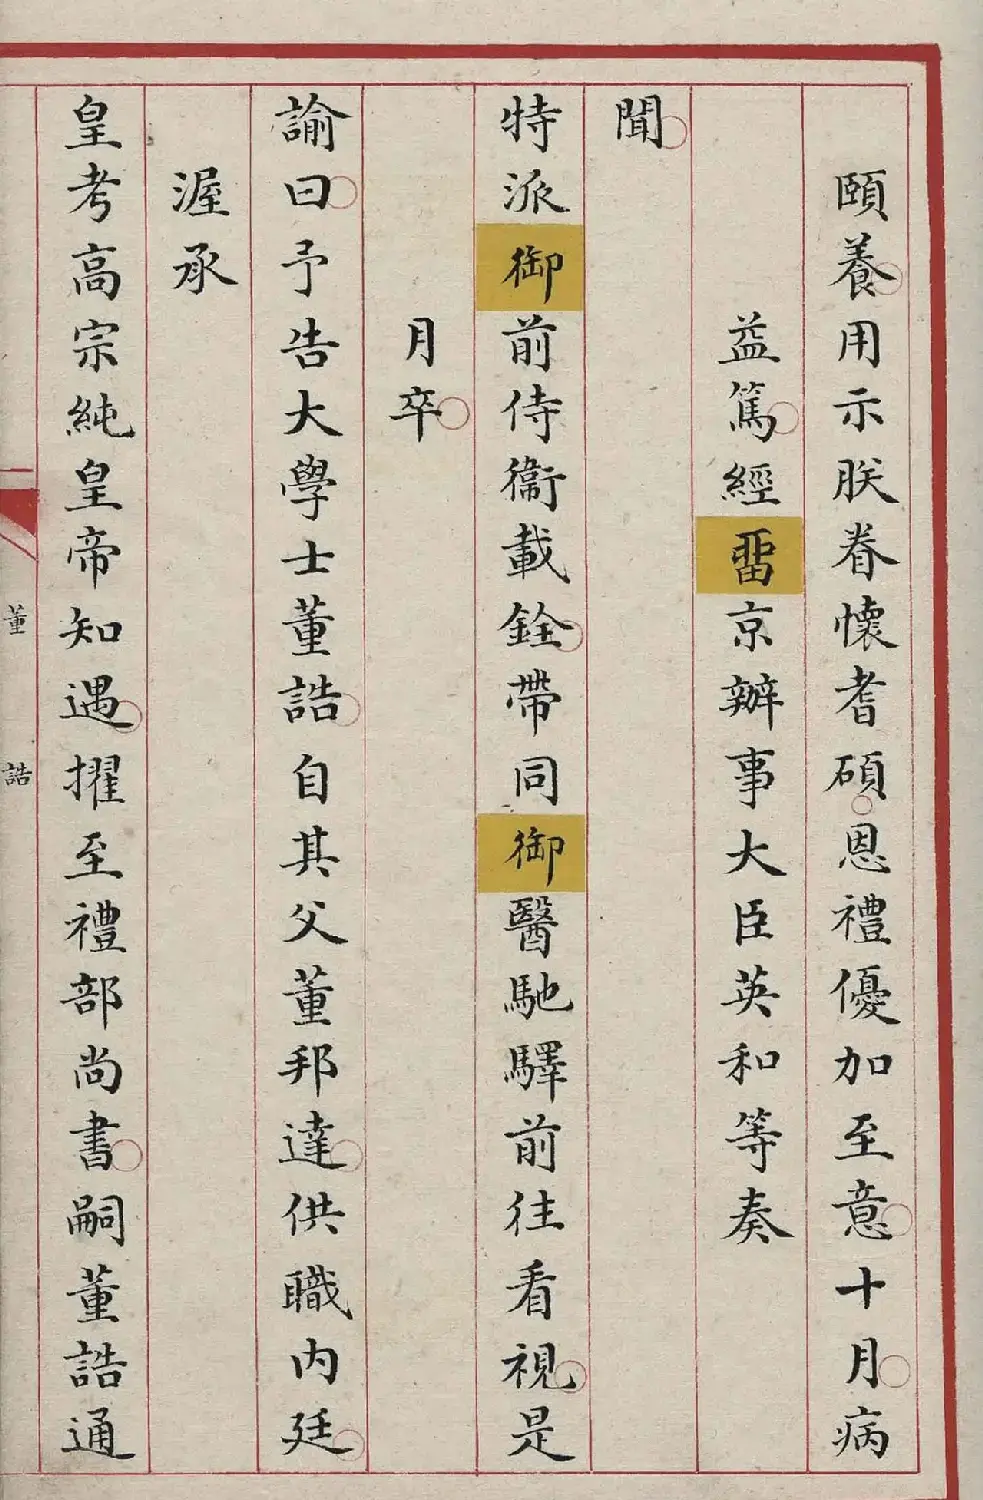 頤養用示朕眷懷耆碩恩禮優加至意十月病
益篤經畱京辦事大臣英和等奏
聞
特派御前侍衞載銓帶同御醫馳驛前往看視是
月卒
諭曰予告大學士董誥自其父董邦達供職內廷
渥承
皇考高宗純皇帝知遇擢至禮部尚書嗣董誥通
董誥